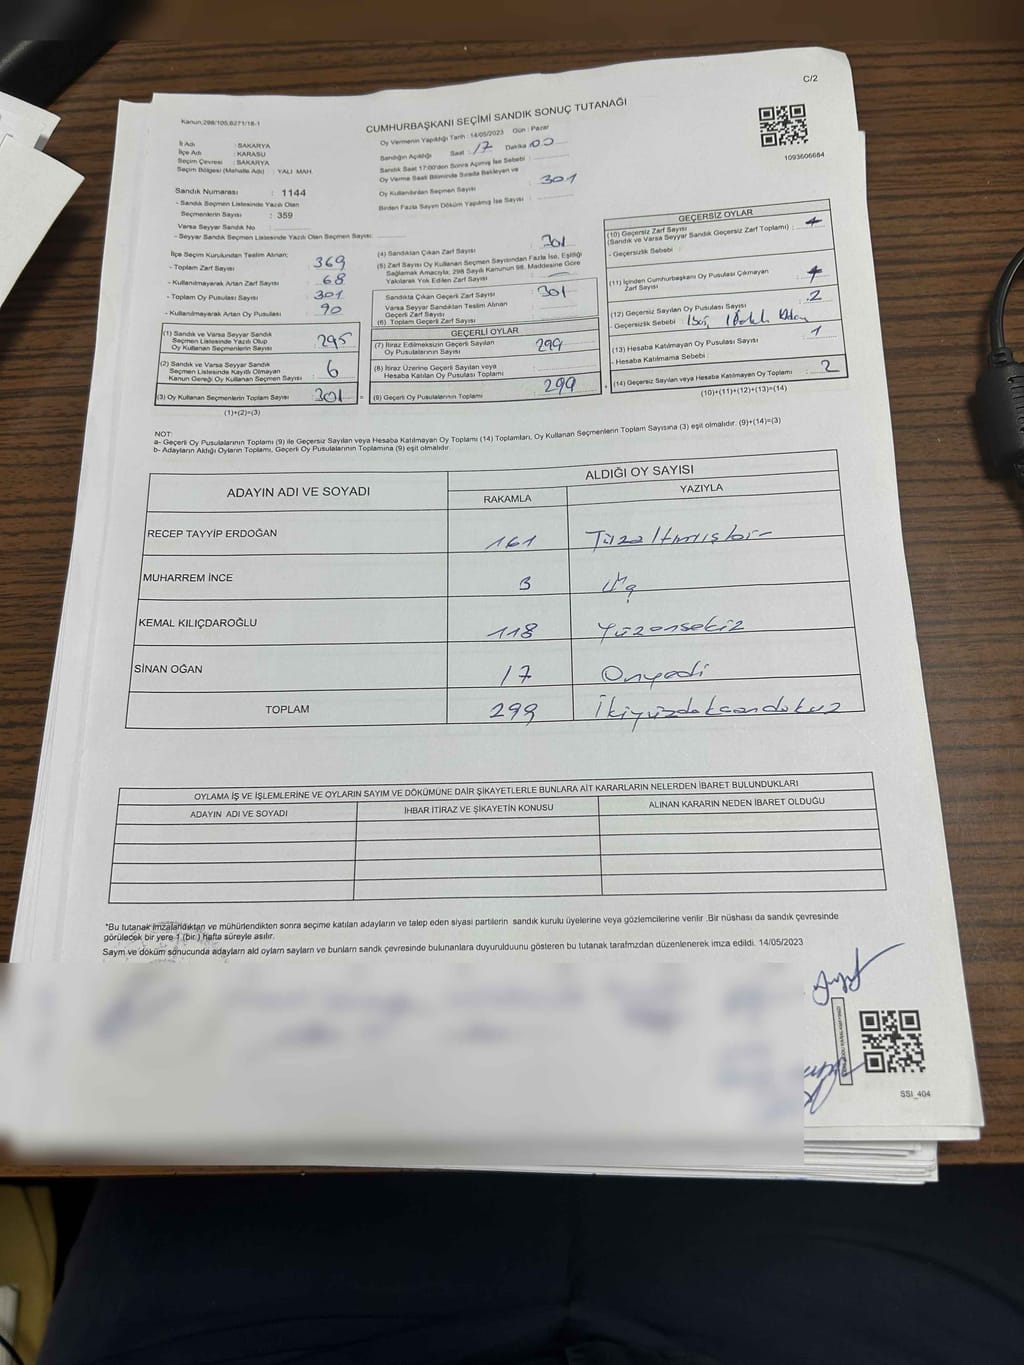 C/2
Kanun;298/105,6271/18-1
CUMHURBAŞKANI SEÇİMİ SANDIK SONUÇ TUTANAĞI
1093606684
İl Adı : SAKARYA
İlçe Adı : KARASU
Seçim Çevresi : SAKARYA
Seçim Bölgesi (Mahalle Adı) : YALI MAH.
Sandık Numarası : 1144
- Sandık Seçmen Listesinde Yazılı Olan
Seçmenlerin Sayısı : 359
Varsa Seyyar Sandık No :
- Seyyar Sandık Seçmen Listesinde Yazılı Olan Seçmen Sayısı:
Oy Vermenin Yapıldığı Tarih : 14/05/2023 Gün : Pazar
Sandığın Açıldığı Saat : 17 Dakika : 00
Sandık Saat 17:00'den Sonra Açılmış İse Sebebi :
Oy Verme Saati Bitiminde Sırada Bekleyen ve
Oy Kullandırılan Seçmen Sayısı : 301
Birden Fazla Sayım Döküm Yapılmış İse Sayısı :
İlçe Seçim Kurulundan Teslim Alınan;
- Toplam Zarf Sayısı : 369
- Kullanılmayarak Artan Zarf Sayısı : 68
- Toplam Oy Pusulası Sayısı : 301
- Kullanılmayarak Artan Oy Pusulası : 90
(1) Sandık ve Varsa Seyyar Sandık
Seçmen Listesinde Yazılı Olup
Oy Kullanan Seçmenlerin Sayısı : 295
(2) Sandık ve Varsa Seyyar Sandık
Seçmen Listesinde Kayıtlı Olmayan
Kanun Gereği Oy Kullanan Seçmen Sayısı : 6
(3) Oy Kullanan Seçmenlerin Toplam Sayısı : 301
(1)+(2)=(3)
(4) Sandıktan Çıkan Zarf Sayısı : 301
(5) Zarf Sayısı Oy Kullanan Seçmen Sayısından Fazla İse, Eşitliği
Sağlamak Amacıyla; 298 Sayılı Kanunun 98. Maddesine Göre
Yakılarak Yok Edilen Zarf Sayısı : —
Sandıkta Çıkan Geçerli Zarf Sayısı : 301
Varsa Seyyar Sandıktan Teslim Alınan
Geçerli Zarf Sayısı :
(6) Toplam Geçerli Zarf Sayısı :
GEÇERLİ OYLAR
(7) İtiraz Edilmeksizin Geçerli Sayılan
Oy Pusulalarının Sayısı : 299
(8) İtiraz Üzerine Geçerli Sayılan veya
Hesaba Katılan Oy Pusulası Toplamı :
(9) Geçerli Oy Pusulalarının Toplamı : 299
GEÇERSİZ OYLAR
(10) Geçersiz Zarf Sayısı
(Sandık ve Varsa Seyyar Sandık Geçersiz Zarf Toplamı) :
- Geçersizlik Sebebi :
(11) İçinden Cumhurbaşkanı Oy Pusulası Çıkmayan
Zarf Sayısı :
(12) Geçersiz Sayılan Oy Pusulası Sayısı : 2
- Geçersizlik Sebebi :
(13) Hesaba Katılmayan Oy Pusulası Sayısı :
- Hesaba Katılmama Sebebi :
(14) Geçersiz Sayılan veya Hesaba Katılmayan Oy Toplamı : 2
(10)+(11)+(12)+(13)=(14)
NOT:
a- Geçerli Oy Pusulalarının Toplamı (9) ile Geçersiz Sayılan veya Hesaba Katılmayan Oy Toplamı (14) Toplamları, Oy Kullanan Seçmenlerin Toplam Sayısına (3) eşit olmalıdır. (9)+(14)=(3)
b- Adayların Aldığı Oyların Toplamı, Geçerli Oy Pusulalarının Toplamına (9) eşit olmalıdır.
ADAYIN ADI VE SOYADI ALDIĞI OY SAYISI
RAKAMLA YAZIYLA
RECEP TAYYİP ERDOĞAN 161 Yüzaltmışbir
MUHARREM İNCE 3 Üç
KEMAL KILIÇDAROĞLU 118 Yüzonsekiz
SİNAN OĞAN 17 Onyedi
TOPLAM 299 İkiyüzdoksandokuz
OYLAMA İŞ VE İŞLEMLERİNE VE OYLARIN SAYIM VE DÖKÜMÜNE DAİR ŞİKAYETLERLE BUNLARA AİT KARARLARIN NELERDEN İBARET BULUNDUKLARI
ADAYIN ADI VE SOYADI İHBAR İTİRAZ VE ŞİKAYETİN KONUSU ALINAN KARARIN NEDEN İBARET OLDUĞU
*Bu tutanak imzalandıktan ve mühürlendikten sonra seçime katılan adayların ve talep eden siyasi partilerin sandık kurulu üyelerine veya gözlemcilerine verilir .Bir nüshası da sandık çevresinde
görülecek bir yere 1 (bir) hafta süreyle asılır.
Saym ve döküm sonucunda adaylarn ald oylarn saylarn ve bunlarn sandk çevresinde bulunanlara duyurulduunu gösteren bu tutanak tarafmzdan düzenlenerek imza edildi. 14/05/2023
SSI_404